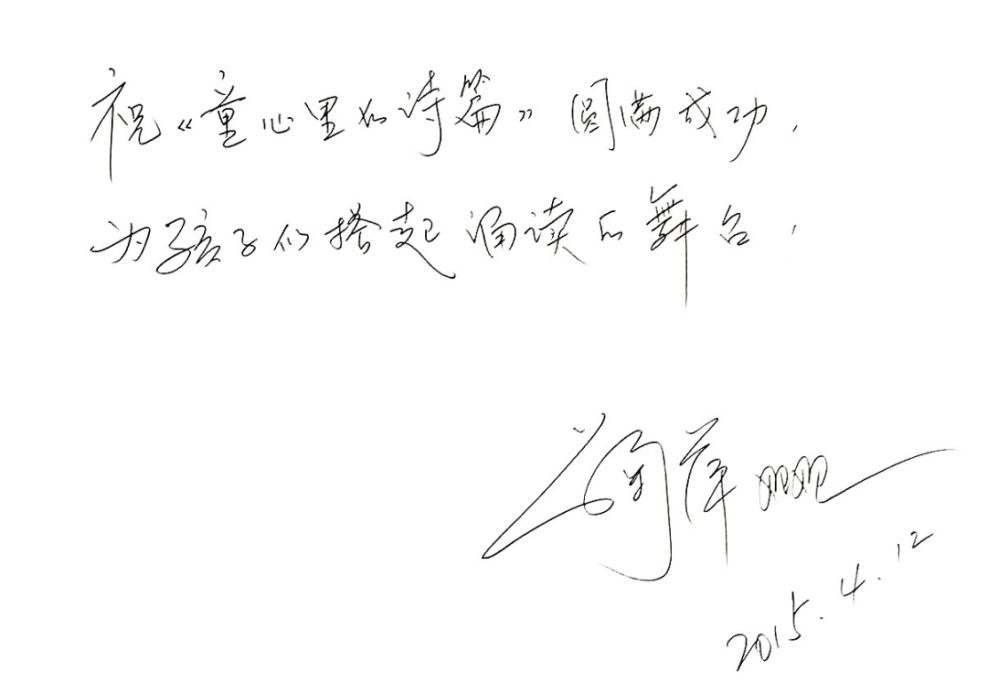 祝《童心里的诗篇》圆满成功，
为孩子们搭起诵读的舞台，
鞠萍姐姐
2015.4.12